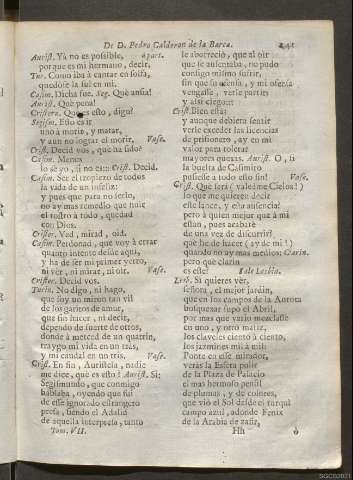 De D. Pedro Calderon de la Barca. 241
Aurist. Ya no es possible, à part.
porque es mi hermano, decir,
Tur. Como iba à cantar en solfa,
quedose la sul en mi.
Casim. Dicha fue. Seg. Què ansia!
Aurist. Què pena!
Cristern. Què es esto, digo?
Segism. Esto es ir
uno à morir, y matar,
y aun no lograr el morir. Vase.
Crist. Decid vos, què ha sido?
Casim. Menos
lo sè yo, si no es::: Crist. Decid.
Casim. Ser el tropiezo de todos
la vida de un infeliz:
y pues que para no serlo,
no ay mas remedio que huir
el rostro à todo, quedad
con Dios.
Crister. Ved, mirad, oid.
Casim. Perdonad, que voy à errar
quanto intente desde aqui,
y ha de ser mi primer yerro,
ni ver, ni mirar, ni oir. Vase.
Crister. Decid vos.
Turin. No digo, ni hago,
que soy un miron tan vil
de los garitos de amar,
que sin hacer, ni decir,
dependo de suerte de otros,
donde à merced de un quatrin,
traygo mi vida en un tràs,
y mi caudal en un tris. Vase.
Crist. En fin, Auristela, nadie
me dice, què es esto? Aurist. Si:
Segismundo, que conmigo
hablaba, oyendo que fui
de esse ignorado estrangero
presa, siendo el Adalid
de aquella interpresa, tanto
Tom. VII.
le aborreciò, que al oir
que se ausentaba, no pudo
consigo mismo sufrir,
sin que su ofensa, y mi ofensa
vengasse, verle partir:
y assi ciegon
Crist. Bien està;
y aunque debiera sentir
verle exceder las licencias
de prisionero, ay en mi
valor para tolerar
mayores quexas. Aurist. O, si
la buelta de Casimiro
pusiesse à todo esso fin! Vase.
Crist. Què serà (valedme Cielos!)
lo que me quieren decir
este lance, y esta ausencia?
pero à quien mejor que à mi
estàn, pues acabarè
de una vez de discurrir?
què he de hacer (ay de mi!)
quando no ay mas medios: Clarin.
pero què clarin
es este? Sale Lesbia.
Lesb. Si quieres vèr,
señora, el mejor jardin,
que en los campos de la Aurora
bosquexar supo el Abril,
por mas que varìo mezclasse
en uno, y otro matiz,
los claveles ciento à ciento,
los jazmines mil à mil:
Ponte en esse mirador,
veràs la Esfera pulir
de la Plaza de Palacio
el mas hermoso pensil
de plumas, y de colores,
que viò el Sol desde el turquì
campo azul, adonde Fenix
de la Arabia de zafir,
Hh ò
SGCB2021